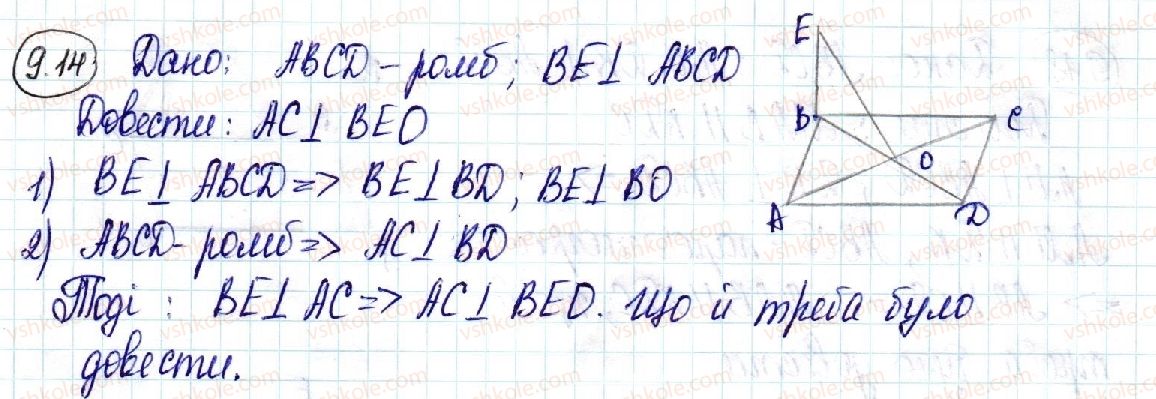 9.14 Дано: ABCD - ромб; BE⊥ ABCD
Довести: AC⊥ BEO
1) BE⊥ ABCD => BE⊥BD; BE⊥BO
2) ABCD - ромб => AC⊥BD
Тоді: BE⊥AC => AC⊥ BEO. Що й треба було
довести.
E
B
C
O
A
D